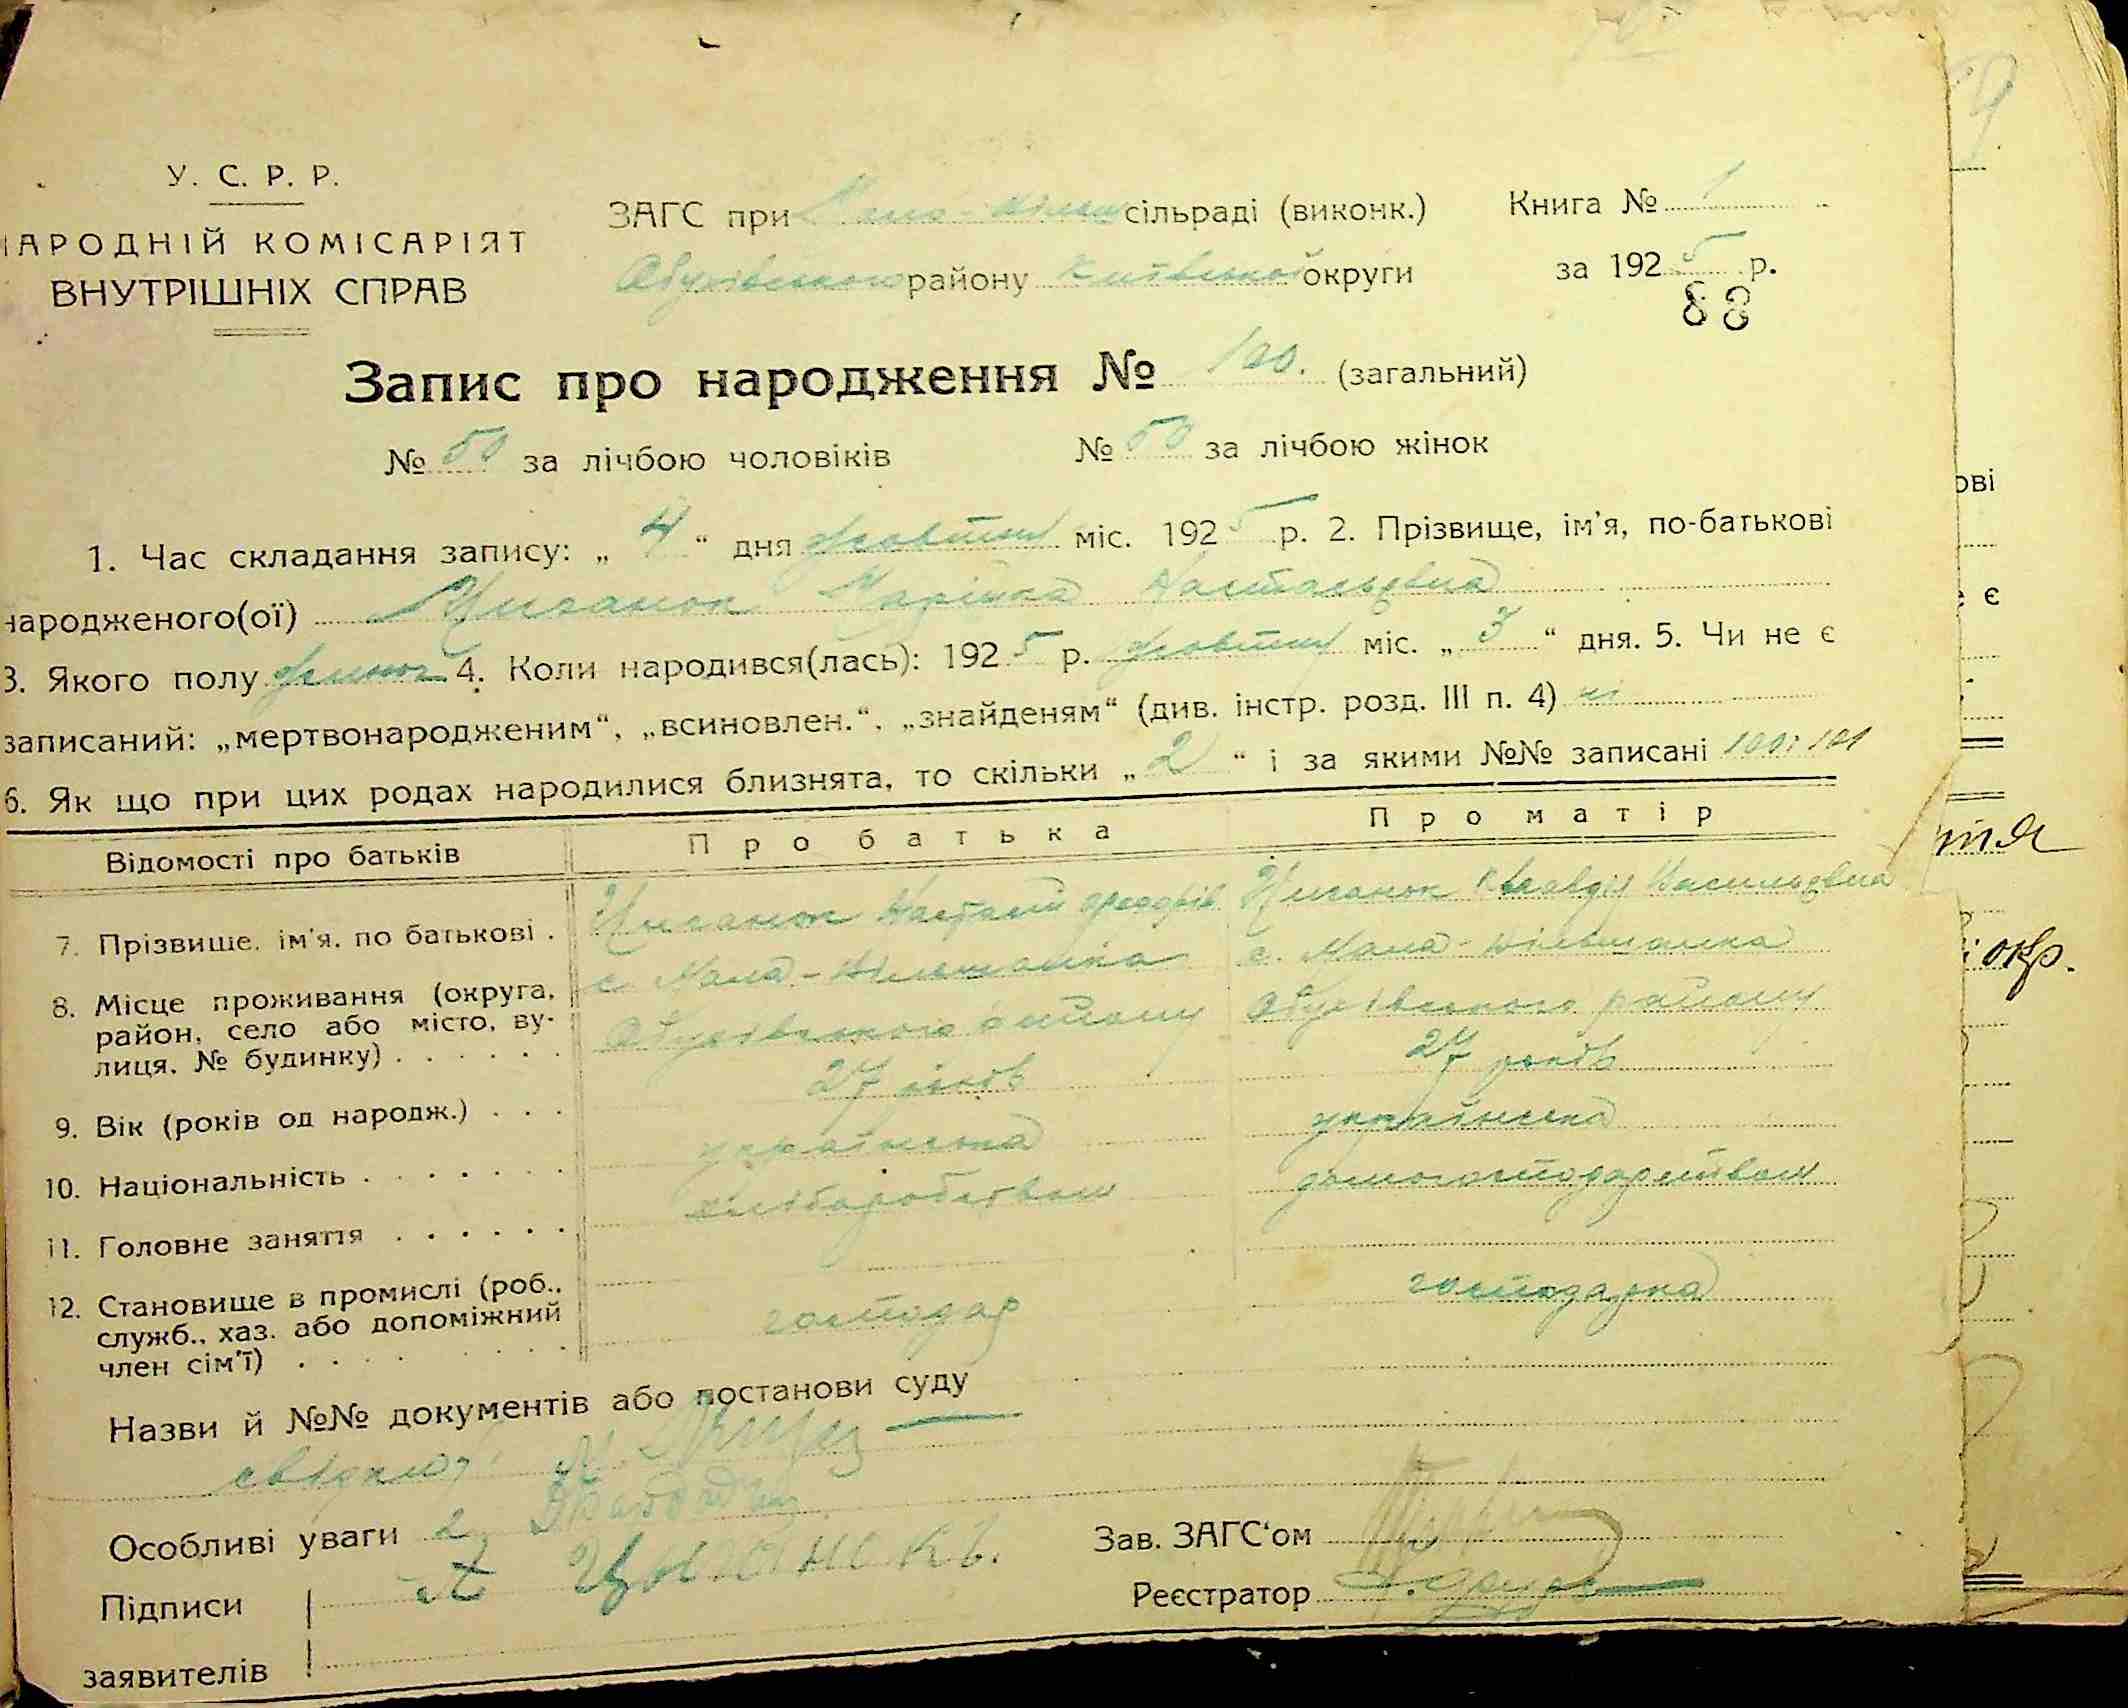 У. С. Р. Р.
НАРОДНІЙ КОМІСАРІЯТ
ВНУТРІШНІХ СПРАВ
ЗАГС при Мало-Вільш сільраді (виконк.)
Обухівського району Київської округи
Книга № 1
за 1925 р.
88
Запис про народження № 100. (загальний)
№ 50 за лічбою чоловіків № 50 за лічбою жінок
1. Час складання запису: „ 4 “ дня жовтня міс. 1925 р. 2. Прізвище, ім'я, по-батькові
народженого(ої) Циганок Марійка
3. Якого полу жіноч 4. Коли народився(лась): 1925 р. жовтня міс. „ 3 “ дня. 5. Чи не є
записаний: „мертвонародженим“, „всиновлен.“, „знайденям“ (див. інстр. розд. III п. 4) ні
6. Як що при цих родах народилися близнята, то скільки „ 2 “ і за якими №№ записані 100 і 101
Відомості про батьків Про батька Про матір
7. Прізвище, ім'я, по батькові . Циганок Циганок Клавдія Васильовна
8. Місце проживання (округа, район, село або місто, вулиця, № будинку) . . . . . . с. Мала-Вільшанка с. Мала-Вільшанка
Обухівського району Обухівського району
9. Вік (років од народж.) . . . 27 років 27 років
10. Національність . . . . . . . українська українська
11. Головне заняття . . . . . . хліборобством домогосподарством
12. Становище в промислі (роб., служб., хаз. або допоміжний член сім'ї) . . . . господар господарка
Назви й №№ документів або постанови суду
свідки 1.
Особливі уваги 2.
Підписи Цыганокъ.
заявителів
Зав. ЗАГС'ом
Реєстратор
ові
є
тя
окр.